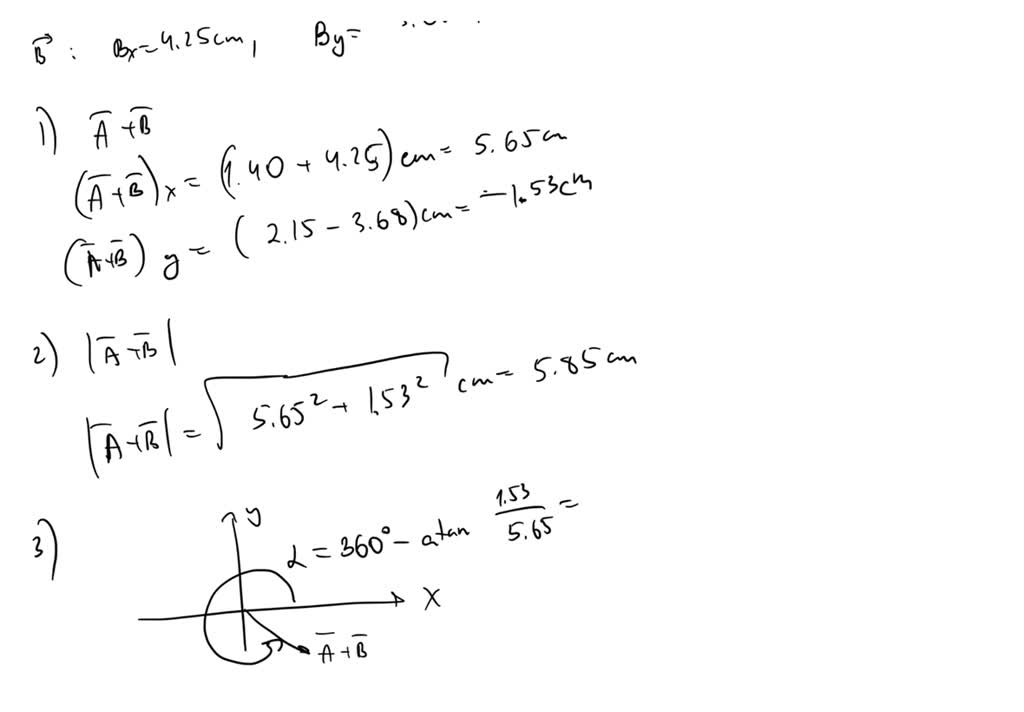 B⃗ : Bx = 4.25 cm, By =
1) A̅ + B̅
(A̅ + B̅)x = (1.40 + 4.25) cm = 5.65 cm
(A̅ + B̅) y = (2.15 − 3.68) cm = −1.53 cm
2) |A̅ + B̅|
|A̅ + B̅| = √(5.65² + 1.53²) cm = 5.85 cm
3) y
α = 360° − atan 1.53/5.65 =
X
A̅ + B̅